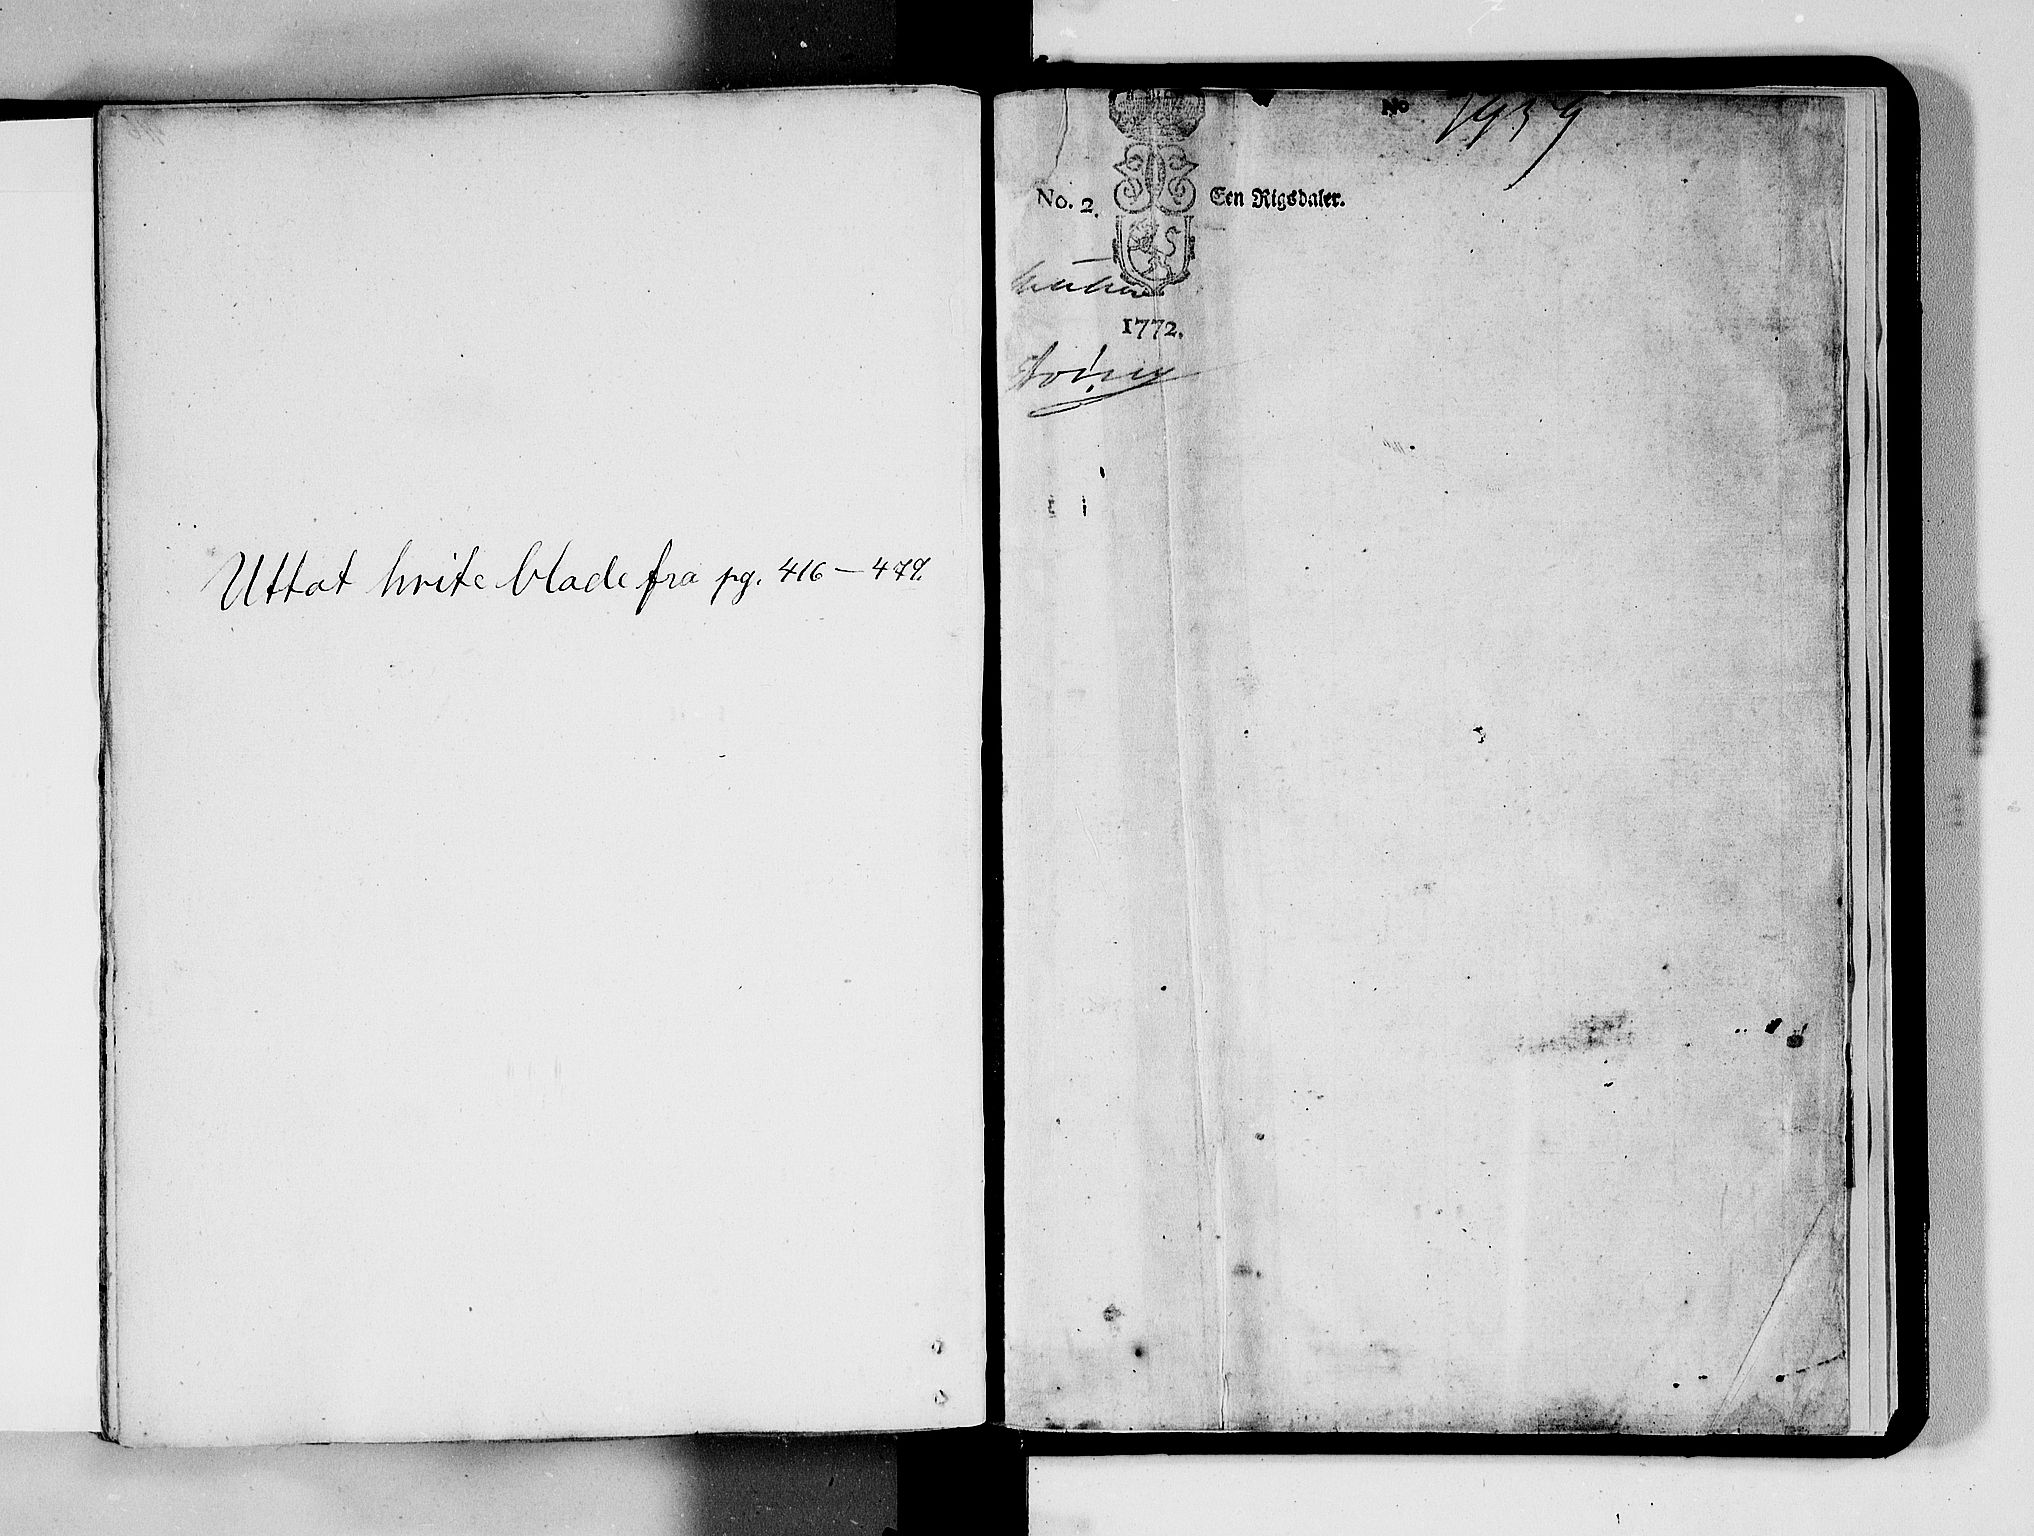 Uttat hvite blade fra pg. 416 — 479.
No 1939
No. 2. Een Rigsdaler.
1772.